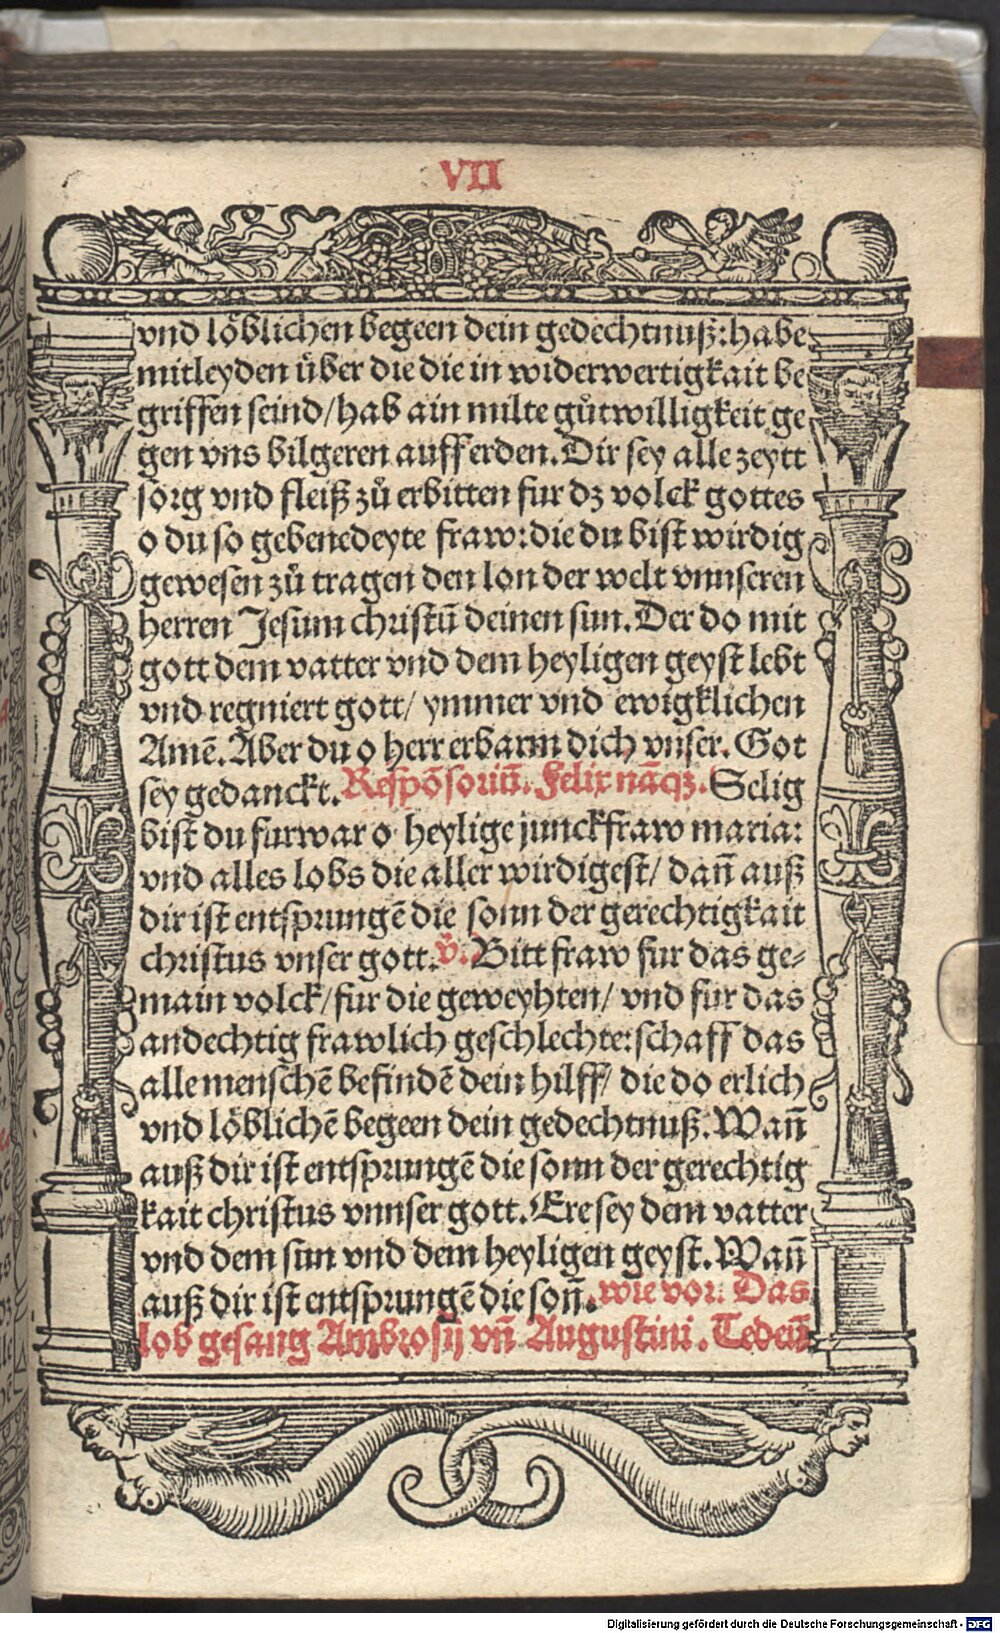 VII
vnd löblichen begeen dein gedechtnuß: habe
mitleyden über die die in widerwertigkait be
griffen seind/hab ain milte gůtwilligkeit ge
gen vns bilgeren auff erden. Dir sey alle zeytt
sorg vnd fleiß zů erbitten fur dz volck gottes
o du so gebenedeyte fraw: die du bist wirdig
gewesen zů tragen den lon der welt vnnseren
herren Jesum christū deinen sun. Der do mit
gott dem vatter vnd dem heyligen geyst lebt
vnd regniert gott/ ymmer vnd ewigklichen
Amē. Aber du o herr erbarm dich vnser. Got
sey gedanckt. Respōsoriū. Felix nāqꝫ. Selig
bist du furwar o heylige junckfraw maria:
vnd alles lobs die aller wirdigest/ dañ auß
dir ist entsprungē die sonn der gerechtigkait
christus vnser gott. v̊. Bitt fraw fur das ge-
main volck/fur die geweyhten/ vnd fur das
andechtig frawlich geschlechte: schaff das
alle menschē befindē dein hilff/ die do erlich
vnd löblichē begeen dein gedechtnuß. Wañ
auß dir ist entsprungē die sonn der gerechtig
kait christus vnnser gott. Ere sey dem vatter
vnd dem sun vnd dem heyligen geyst. Wañ
auß dir ist entsprungē die soñ. wie vor. Das
lob gesang Ambrosij vñ Augustini. Tedeū
Digitalisierung gefördert durch die Deutsche Forschungsgemeinschaft - DFG